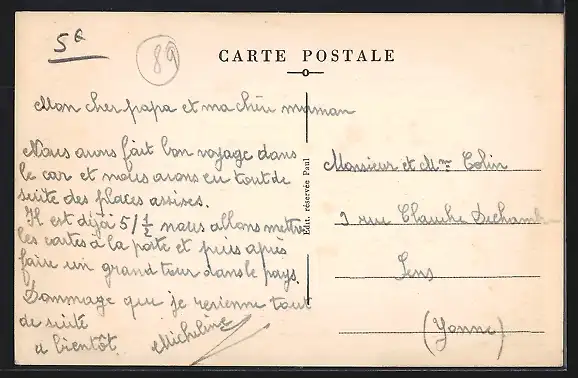 5€
89
CARTE POSTALE
Mon cher papa et ma chère maman
Nous avons fait bon voyage dans
le car et nous avons eu tout de
suite des places assises.
Il est déjà 5/½ nous allons mettre
les cartes à la poste et puis après
faire un grand tour dans le pays.
Dommage que je revienne tout
de suite
a bientôt. Micheline
Edit. réservée Paul
Monsieur et Mme Colin
rue Claude
Sens
(Yonne)